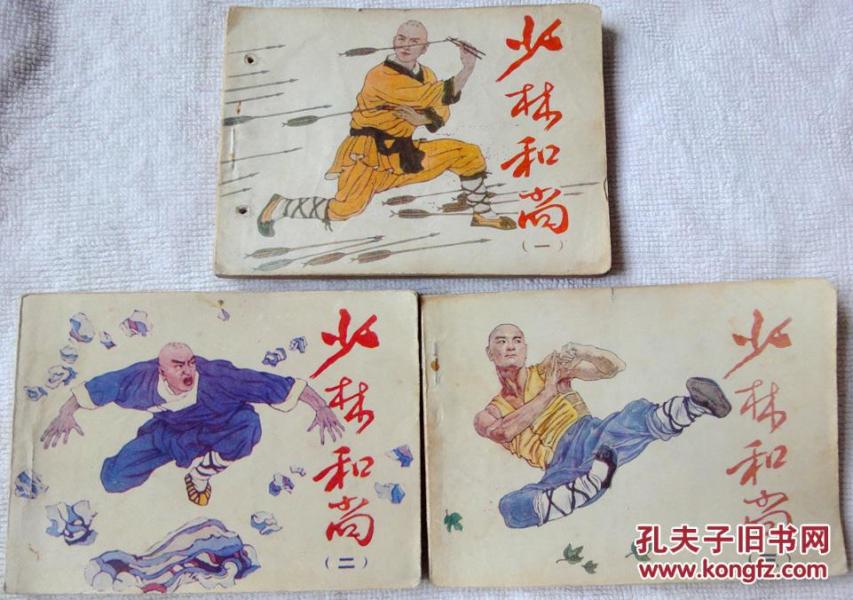 少林和尚
(一)
少林和尚
(二)
少林和尚
(三)
孔夫子旧书网
www.kongfz.com